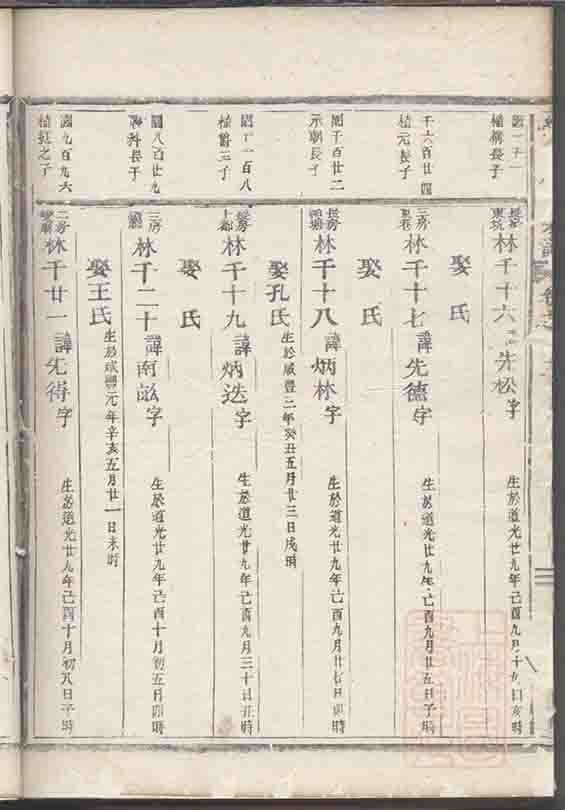 長子
林千十六 諱先松字
生於道光廿九年己酉九月十
日亥時
娶 氏
千六百廿四
植元長子
林千十七 諱先德字
生於道光廿九年己酉九月廿五日子時
娶 氏
千百廿二
示朝長子
長房
林千十八 諱炳林字
生於道光廿九年己酉九月廿七日卯時
娶孔氏
生於咸豐二年癸丑五月廿三日戌時
百八
植爵三子
長房
上都
林千十九 諱炳迭字
生於道光廿九年己酉九月三十日丑時
娶 氏
八百廿九
科長子
三房
林千二十 諱南
字
生於道光廿九年己酉十月初五日卯時
娶王氏
生於咸豐元年辛亥五月廿一日未時
九百九六
植廷之子
二房
林千廿一 諱先得字
生於道光廿九年己酉十月初八日子時